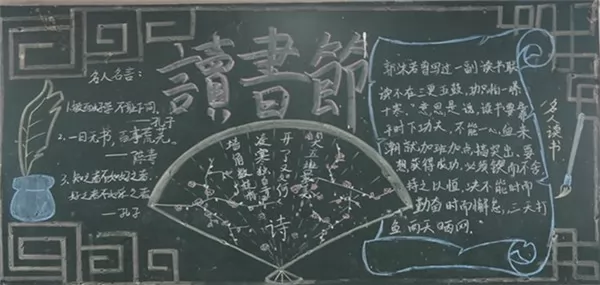 讀書節
名人名言:
1.敏而好学,不耻下问。
——孔子
2.一日无书,百事荒芜。
——陈寿
3.知之者不如好之者,
好之者不如乐之者。
——孔子
墙角数枝梅
诗
郭沫若曾写过一副读书联
读不在三更五鼓,功只怕一曝
十寒。"意思是说,读书要靠
平时下功夫,不能一心血来
潮就加班加点搞突击。要
想获得成功,必须锲而不舍
持之以恒,决不能时而
勤奋时而懈怠,三天打
鱼两天晒网。
名人读书